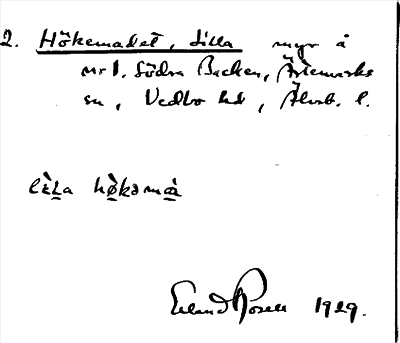 2. Hökemadet, Lilla myr å
nr 1. Södra Backen, Ärtemarks
sn, Vedbo hd, Älvsb. l.
lìla hø̀kəmà
Erland Rosell 1929.